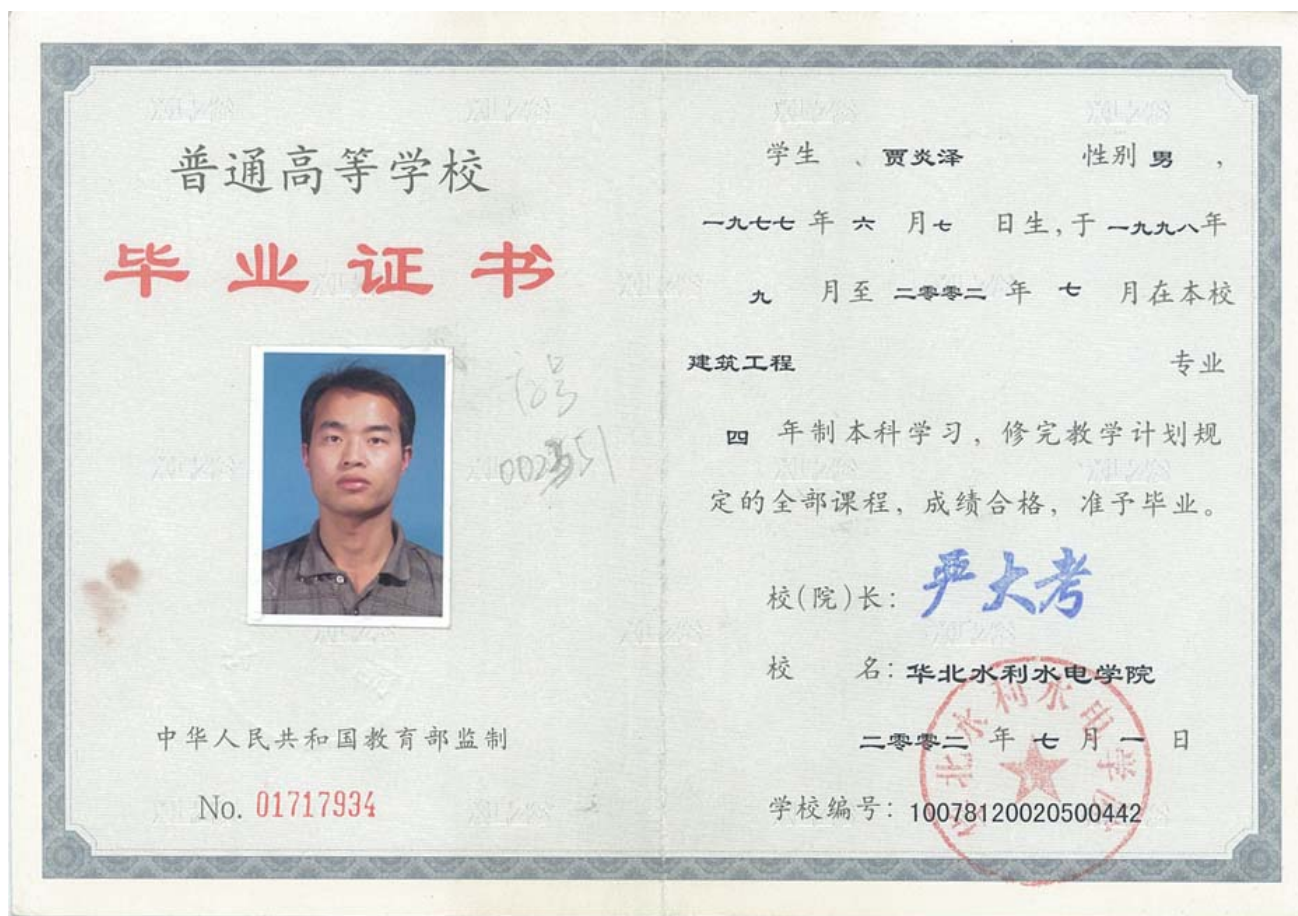 普通高等学校
毕业证书
中华人民共和国教育部监制
No. 01717934
学生 、贾炎泽 性别 男 ,
一九七七 年 六 月 七 日生,于 一九九八年
九 月至 二零零二 年 七 月在本校
建筑工程 专业
四 年制本科学习, 修完教学计划规
定的全部课程, 成绩合格, 准予毕业。
校(院)长: 严大考
校 名: 华北水利水电学院
二零零二 年 七 月 一 日
学校编号: 10078120020500442
华北水利水电学院